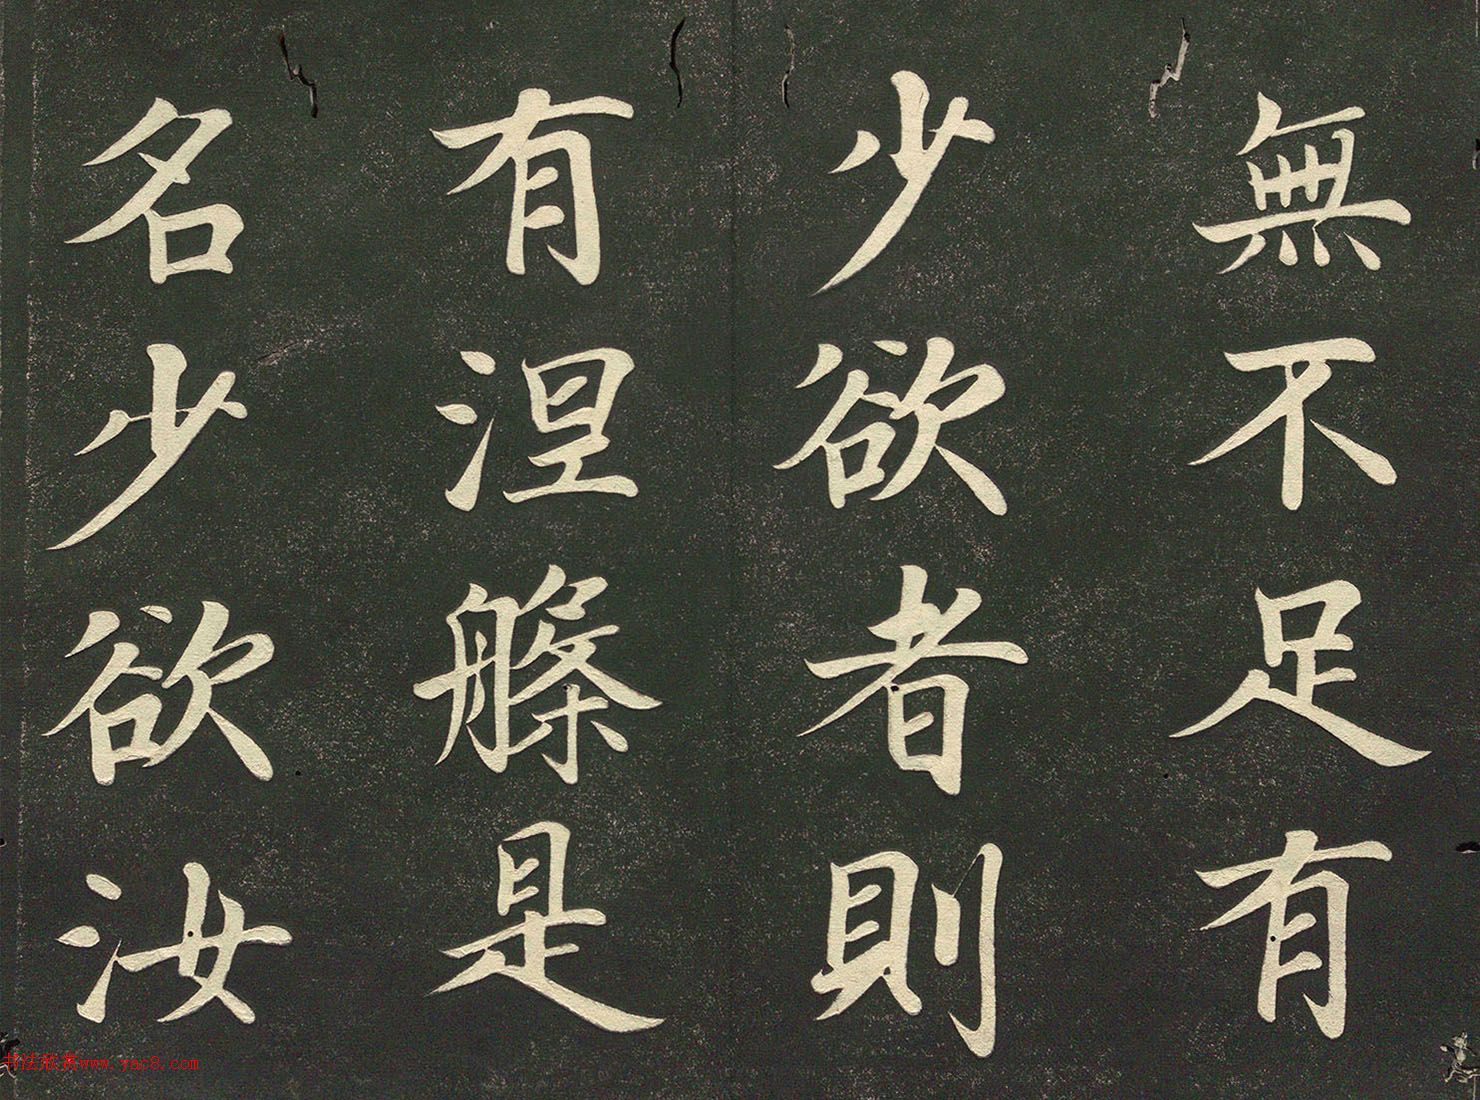 無不足有
少欲者則
有涅槃是
名少欲汝
书法欣赏www.yac8.com